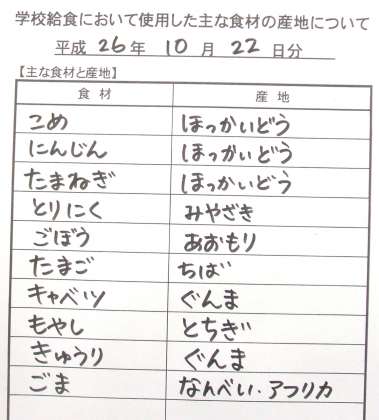 学校給食において使用した主な食材の産地について
平成 26 年 10 月 22 日分
【主な食材と産地】
食材 産地
こめ ほっかいどう
にんじん ほっかいどう
たまねぎ ほっかいどう
とりにく みやざき
ごぼう あおもり
たまご ちば
キャベツ ぐんま
もやし とちぎ
きゅうり ぐんま
ごま なんべい・アフリカ